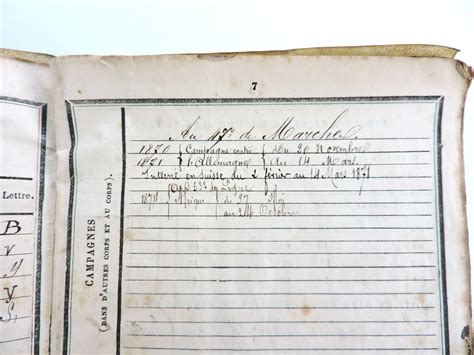 7
Lettre.
B
v
y
y
S,
CAMPAGNES
(DANS D'AUTRES CORPS ET AU CORPS).
Au 47e de Marche
1870 } Campagne contre } Du 20 Novembre
1871 } l'Allemagne } Au 14 Mars.
Interné en Suisse du 2 février au 14 Mars 1871
de Ligne
1871 } Afrique } du 27 Mai
au 24 Octobre